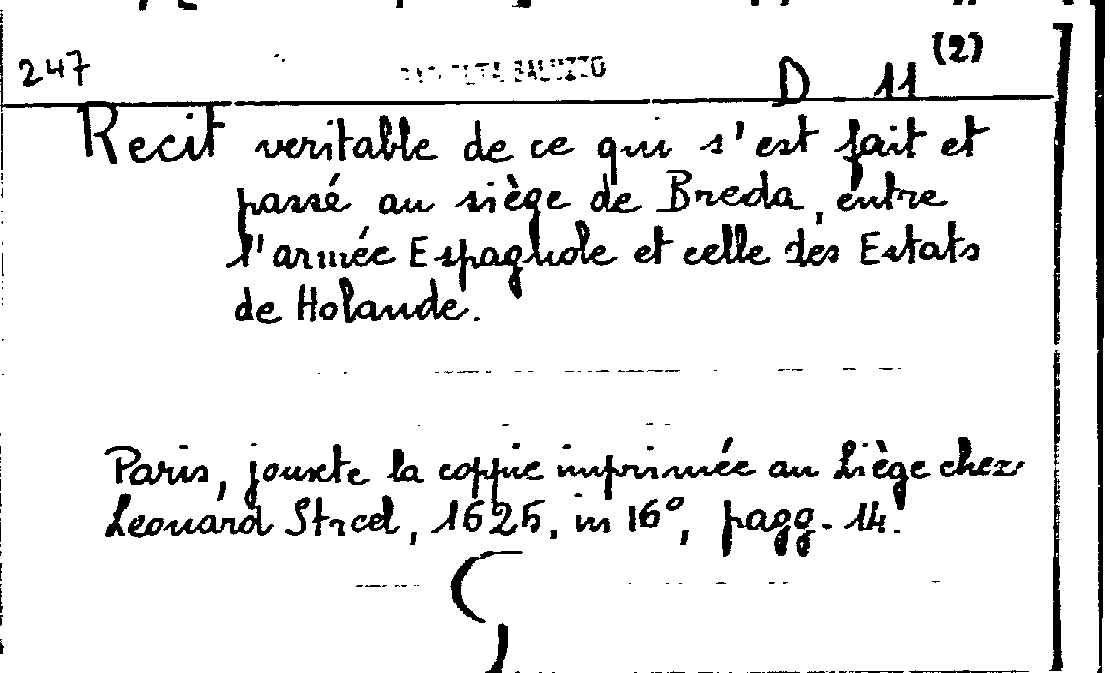 247 D 11 (2)
Recit veritable de ce qui s'est fait et
passé au siège de Breda, entre
l'armée Espagnole et celle des Estats
de Holande.
Paris, jouxte la coppie imprimée au Liège chez
Leonard Streel, 1625, in 16º, pagg. 14.